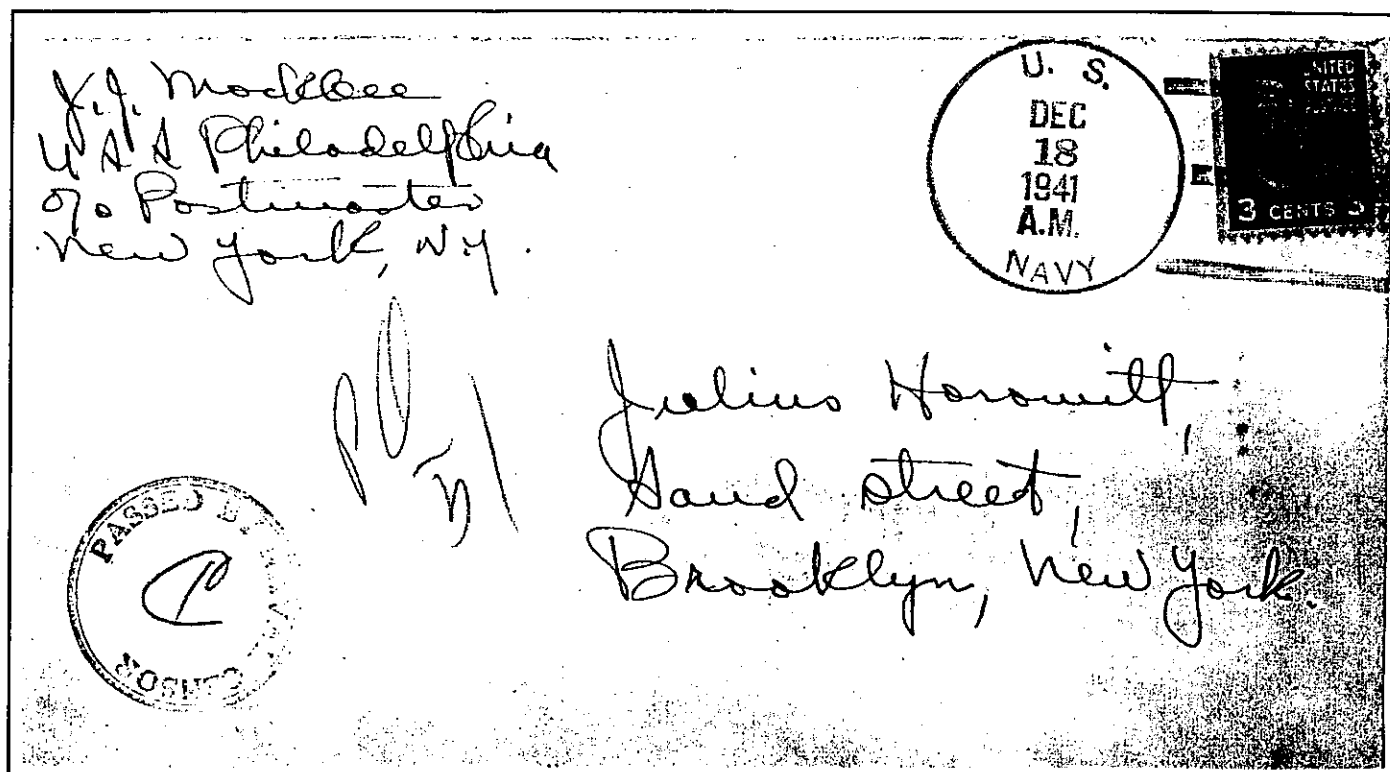 J.J. Mockbee
U S S Philadelphia
c/o Postmaster
New York, N.Y.
U. S.
DEC
18
1941
A.M.
NAVY
UNITED
STATES
POSTAGE
3 CENTS 3
Julius Horowitt,
Sand street,
Brooklyn, New York.
PASSED BY NAVAL CENSOR